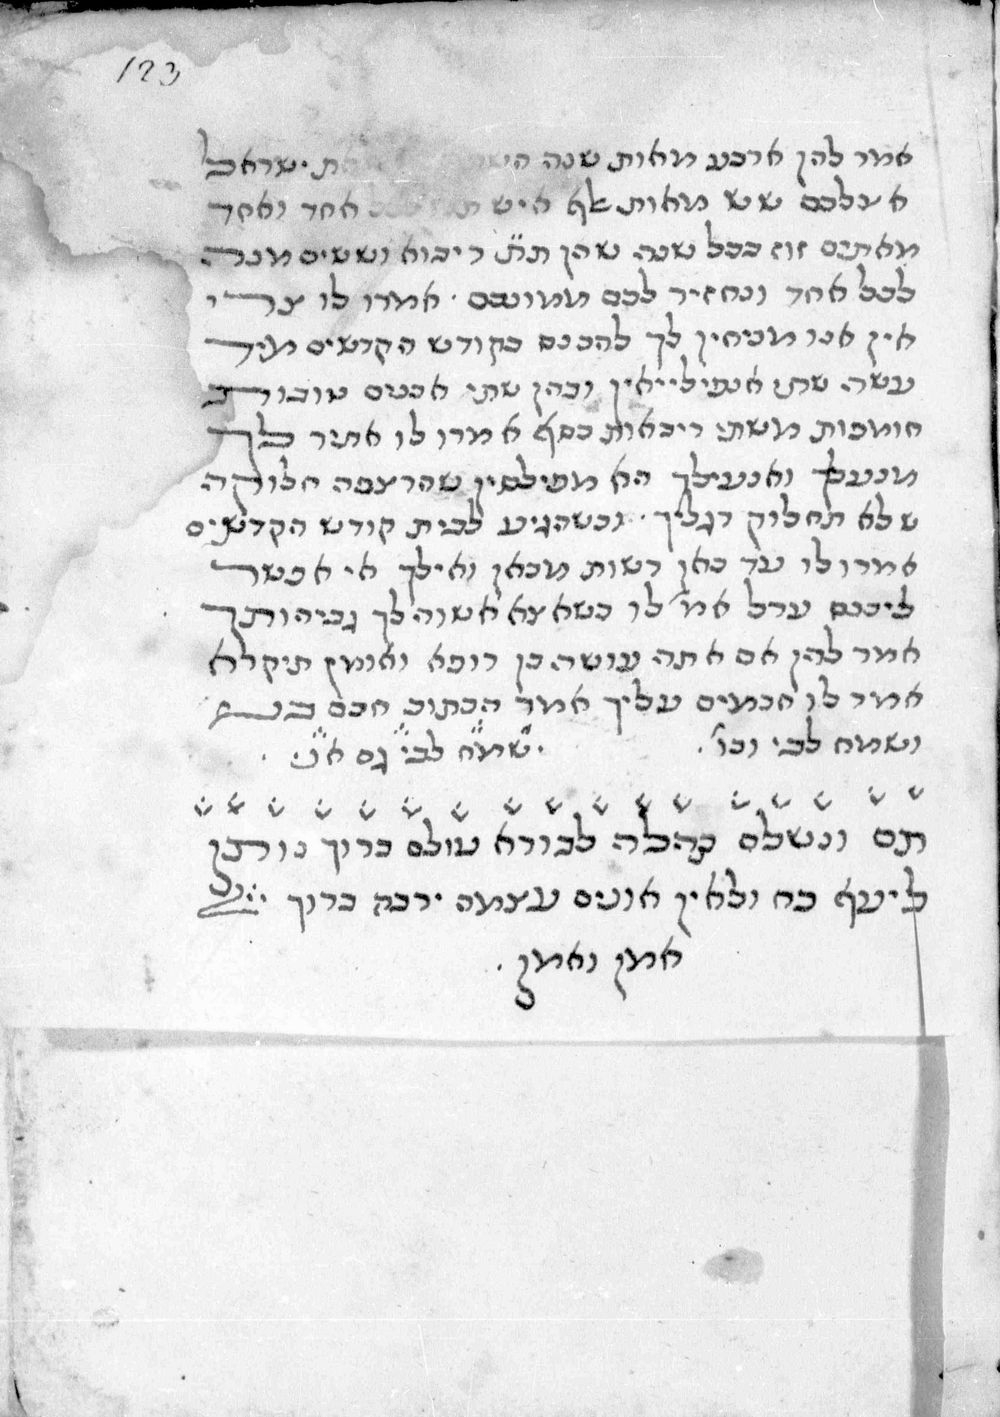 123
אמר להן ארבע מאות שנה ישראל
אצלכם שש מאות אלף איש לכל אחד ואחד
מאתים זוז בכל שנה שהן ת"ת ריבוא וששים מנה
לכל אחד ונחזיר לכם ממונכם . אמרו לו
אין אנו מניחין לך להכנס בקודש הקדשים מיד
עשה שתי אנפילייאין ובהן שתי אבנים טובות
משתי ריבאות כסף אמרו לו אתיר
מנעלך ואנעילך הא מפילסין שהרצפה חלוקה
שלא תחלוק רגליך . וכשהגיע לבית קודש הקדשים
אמרו לו עד כאן רשות מכאן ואילך אי אפשר
ליכנס ערל אמ' לו כשאצא אשוה לך גביהותך
אמר להן אם אתה עושה כן רופא ואומן תיקרא
אמר לו חכמים עליך אמר הכתוב חכם
ושמח לבי וכו' . ישמח לבי גם אני .
תם ונשלם בהלה לבורא עולם ברוך נותן
ליעף כח ולאין אונים עצמה ירבה ברוך
אמן ואמן .